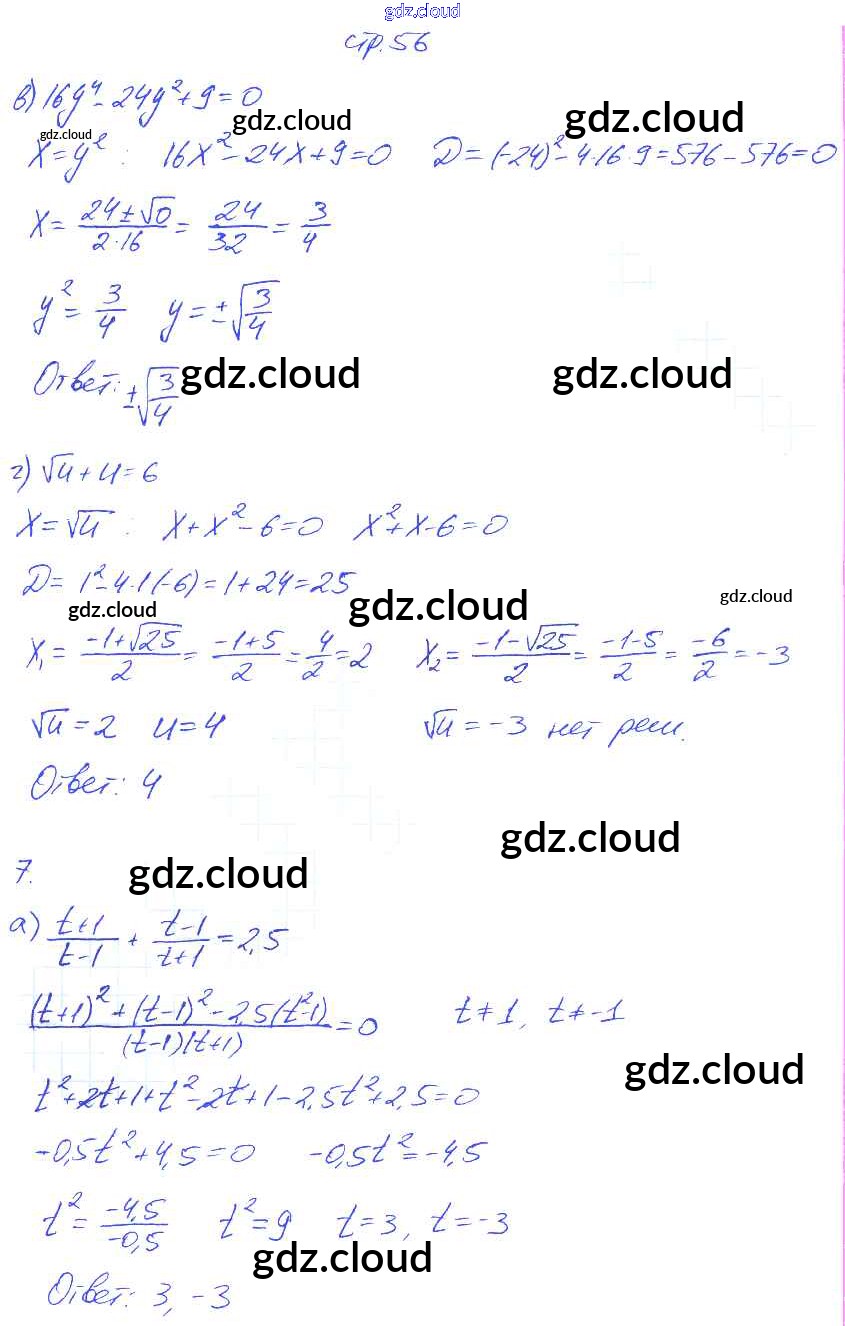 gdz.cloud
стр. 56
в) 16y⁴ - 24y² + 9 = 0
gdz.cloud gdz.cloud gdz.cloud
x = y² : 16x² - 24x + 9 = 0 D = (-24)² - 4·16·9 = 576 - 576 = 0
x = (24 ± √0)/(2·16) = 24/32 = 3/4
y² = 3/4 y = ±√(3/4)
Ответ: ±√(3/4) gdz.cloud gdz.cloud
г) √u + u = 6
x = √u : x + x² - 6 = 0 x² + x - 6 = 0
D = 1² - 4·1(-6) = 1 + 24 = 25
gdz.cloud gdz.cloud gdz.cloud
x₁ = (-1+√25)/2 = (-1+5)/2 = 4/2 = 2 x₂ = (-1-√25)/2 = (-1-5)/2 = -6/2 = -3
√u = 2 u = 4 √u = -3 нет реш.
Ответ: 4
gdz.cloud
7. gdz.cloud
а) (t+1)/(t-1) + (t-1)/(t+1) = 2,5
((t+1)² + (t-1)² - 2,5(t²-1))/((t-1)(t+1)) = 0 t ≠ 1, t ≠ -1
gdz.cloud
t² + 2t + 1 + t² - 2t + 1 - 2,5t² + 2,5 = 0
-0,5t² + 4,5 = 0 -0,5t² = -4,5
t² = -4,5/-0,5 t² = 9 t = 3, t = -3
gdz.cloud
Ответ: 3, -3